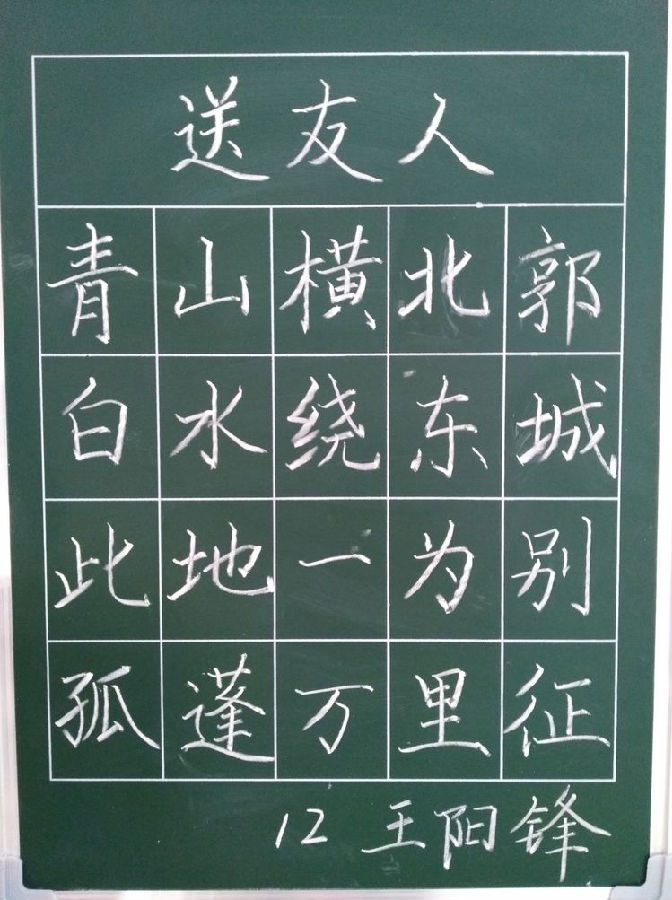 送友人
青山横北郭
白水绕东城
此地一为别
孤蓬万里征
12 王阳锋